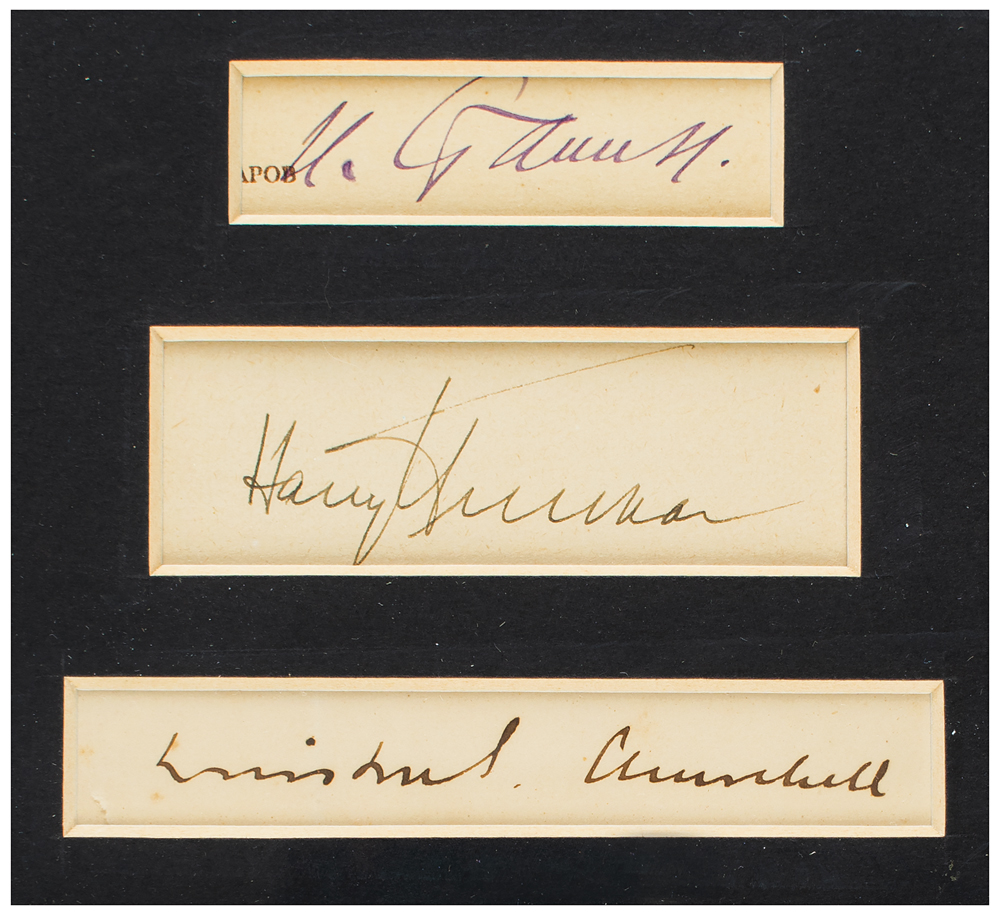 АРОВ
И. Сталин.
Harry Truman
Winston S. Churchill